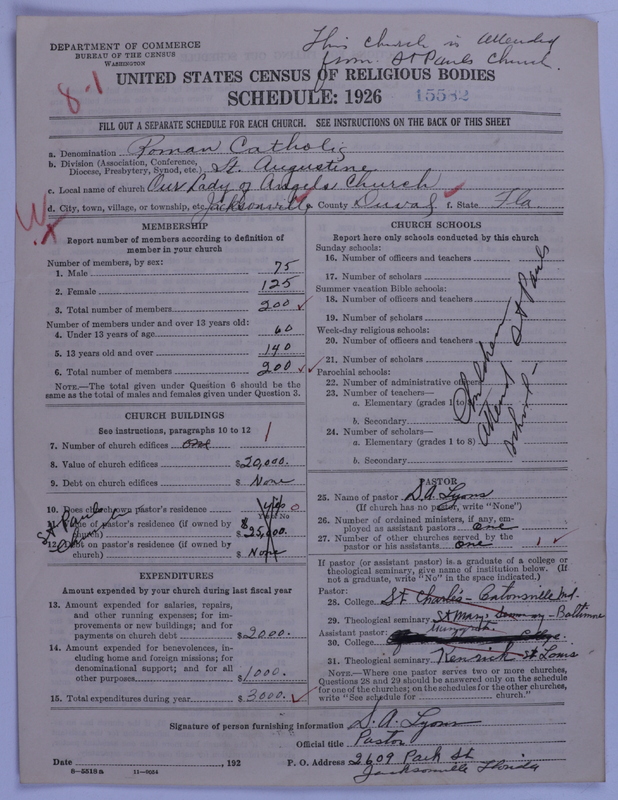 DEPARTMENT OF COMMERCE
BUREAU OF THE CENSUS
WASHINGTON
This church is attended
from St Pauls Church.
8-1
UNITED STATES CENSUS OF RELIGIOUS BODIES
SCHEDULE: 1926
15582
FILL OUT A SEPARATE SCHEDULE FOR EACH CHURCH. SEE INSTRUCTIONS ON THE BACK OF THIS SHEET
a. Denomination Roman Catholic
b. Division (Association, Conference, Diocese, Presbytery, Synod, etc.) St. Augustine
c. Local name of church Our Lady of Angels Church
d. City, town, village, or township, etc. Jacksonville County Duval f. State Fla.
MEMBERSHIP
Report number of members according to definition of
member in your church
Number of members, by sex:
1. Male 75
2. Female 125
3. Total number of members 200
Number of members under and over 13 years old:
4. Under 13 years of age 60
5. 13 years old and over 140
6. Total number of members 200
NOTE.—The total given under Question 6 should be the
same as the total of males and females given under Question 3.
CHURCH BUILDINGS
See instructions, paragraphs 10 to 12
7. Number of church edifices one 1
8. Value of church edifices $20,000.
9. Debt on church edifices $ None
10. Does church own pastor's residence yes 0
Yes or No
11. Value of pastor's residence (if owned by
church) $25,000.
12. Debt on pastor's residence (if owned by
church) $ None
St Pauls Church
EXPENDITURES
Amount expended by your church during last fiscal year
13. Amount expended for salaries, repairs,
and other running expenses; for im-
provements or new buildings; and for
payments on church debt $2000.
14. Amount expended for benevolences, in-
cluding home and foreign missions; for
denominational support; and for all
other purposes $1000.
15. Total expenditures during year $3000.
CHURCH SCHOOLS
Report here only schools conducted by this church
Sunday schools:
16. Number of officers and teachers
17. Number of scholars
Summer vacation Bible schools:
18. Number of officers and teachers
19. Number of scholars
Week-day religious schools:
20. Number of officers and teachers
21. Number of scholars
Parochial schools:
22. Number of administrative officers
23. Number of teachers—
a. Elementary (grades 1 to 8)
b. Secondary
24. Number of scholars—
a. Elementary (grades 1 to 8)
b. Secondary
Children
attend St Pauls
School-
PASTOR
25. Name of pastor S.A. Lyons
(If church has no pastor, write "None")
26. Number of ordained ministers, if any, em-
ployed as assistant pastors one
27. Number of other churches served by the
pastor or his assistants one 1
If pastor (or assistant pastor) is a graduate of a college or
theological seminary, give name of institution below. (If
not a graduate, write "No" in the space indicated.)
Pastor:
28. College St Charles - Catonsville Md.
29. Theological seminary St Mary's Seminary - Baltimore
Assistant pastor:
30. College College.
31. Theological seminary Kenrick St Louis
NOTE.—Where one pastor serves two or more churches,
Questions 28 and 29 should be answered only on the schedule
for one of the churches; on the schedules for the other churches,
write "See schedule for church."
Signature of person furnishing information S.A. Lyons
Official title Pastor
Date , 192 P. O. Address 2609 Park St
Jacksonville Florida
8-5518a 11-9024